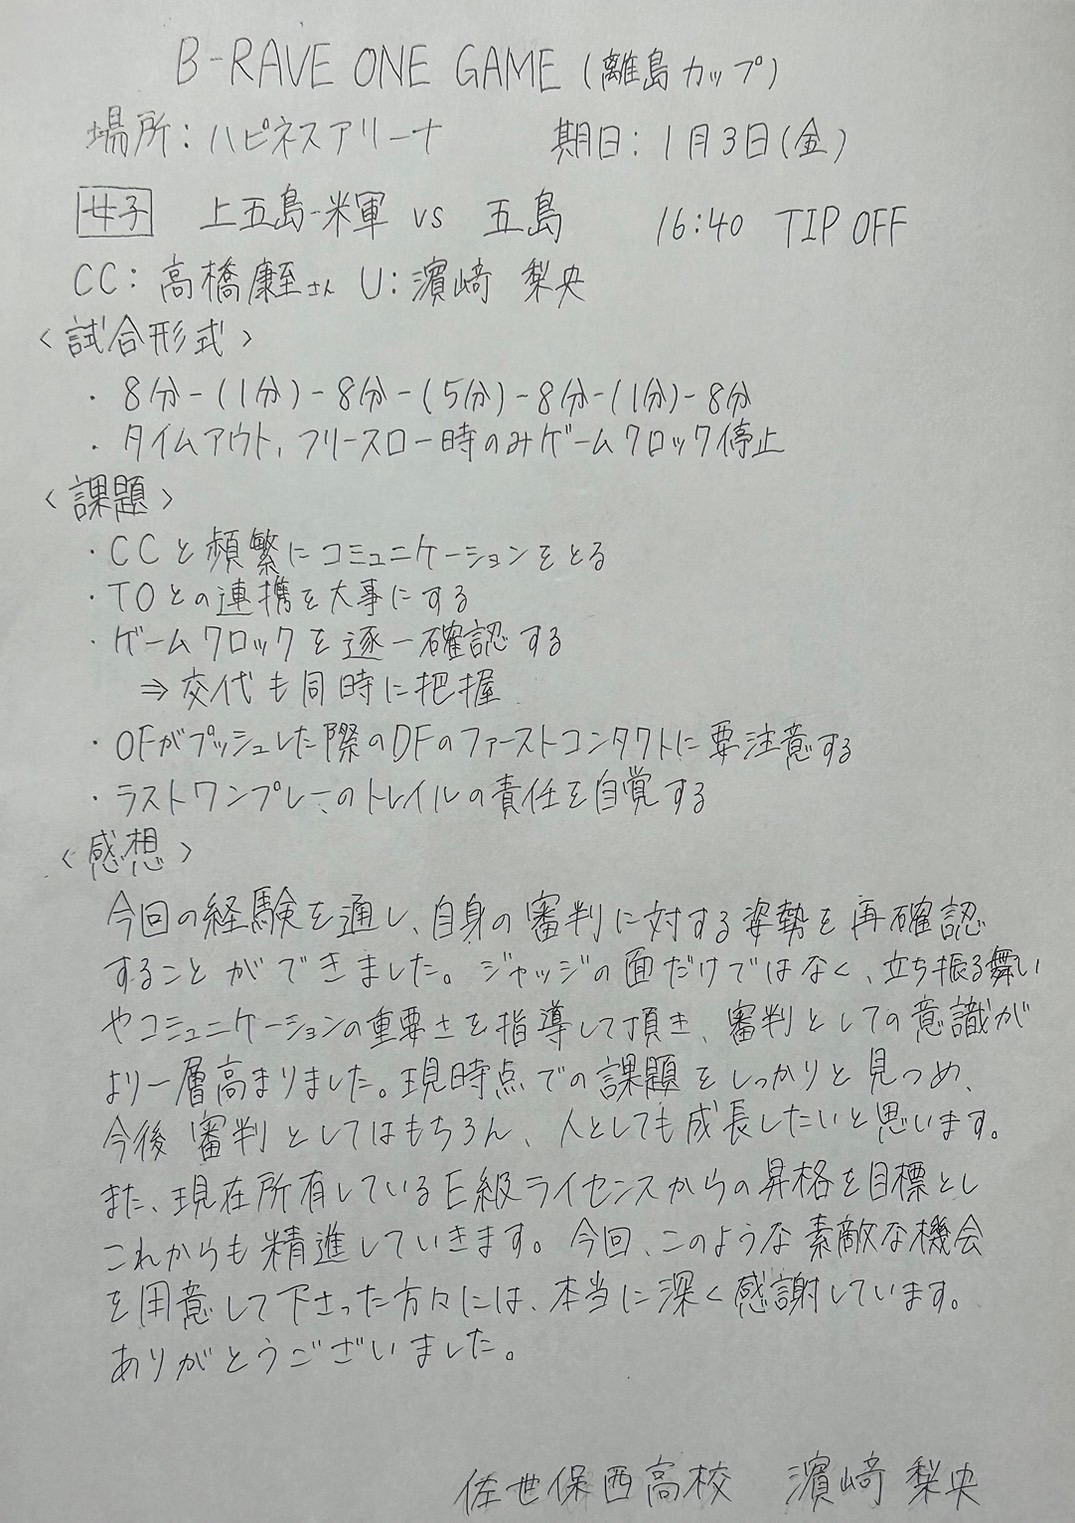 B-RAVE ONE GAME (離島カップ)
場所：ハピネスアリーナ　期日：1月3日(金)
女子　上五島-米軍 vs 五島　16:40 TIP OFF
CC：高橋康至さん U：濵﨑 梨央
〈試合形式〉
・8分-(1分)-8分-(5分)-8分-(1分)-8分
・タイムアウト,フリースロー時のみゲームクロック停止
〈課題〉
・CCと頻繁にコミュニケーションをとる
・TOとの連携を大事にする
・ゲームクロックを逐一確認する
⇒交代も同時に把握
・OFがプッシュした際のDFのファーストコンタクトに要注意する
・ラストワンプレーのトレイルの責任を自覚する
〈感想〉
今回の経験を通し、自身の審判に対する姿勢を再確認
することができました。ジャッジの面だけではなく、立ち振る舞い
やコミュニケーションの重要さを指導して頂き、審判としての意識が
より一層高まりました。現時点での課題をしっかりと見つめ、
今後審判としてはもちろん、人としても成長したいと思います。
また、現在所有しているE級ライセンスからの昇格を目標とし
これからも精進していきます。今回、このような素敵な機会
を用意して下さった方々には、本当に深く感謝しています。
ありがとうございました。
佐世保西高校　濵﨑 梨央